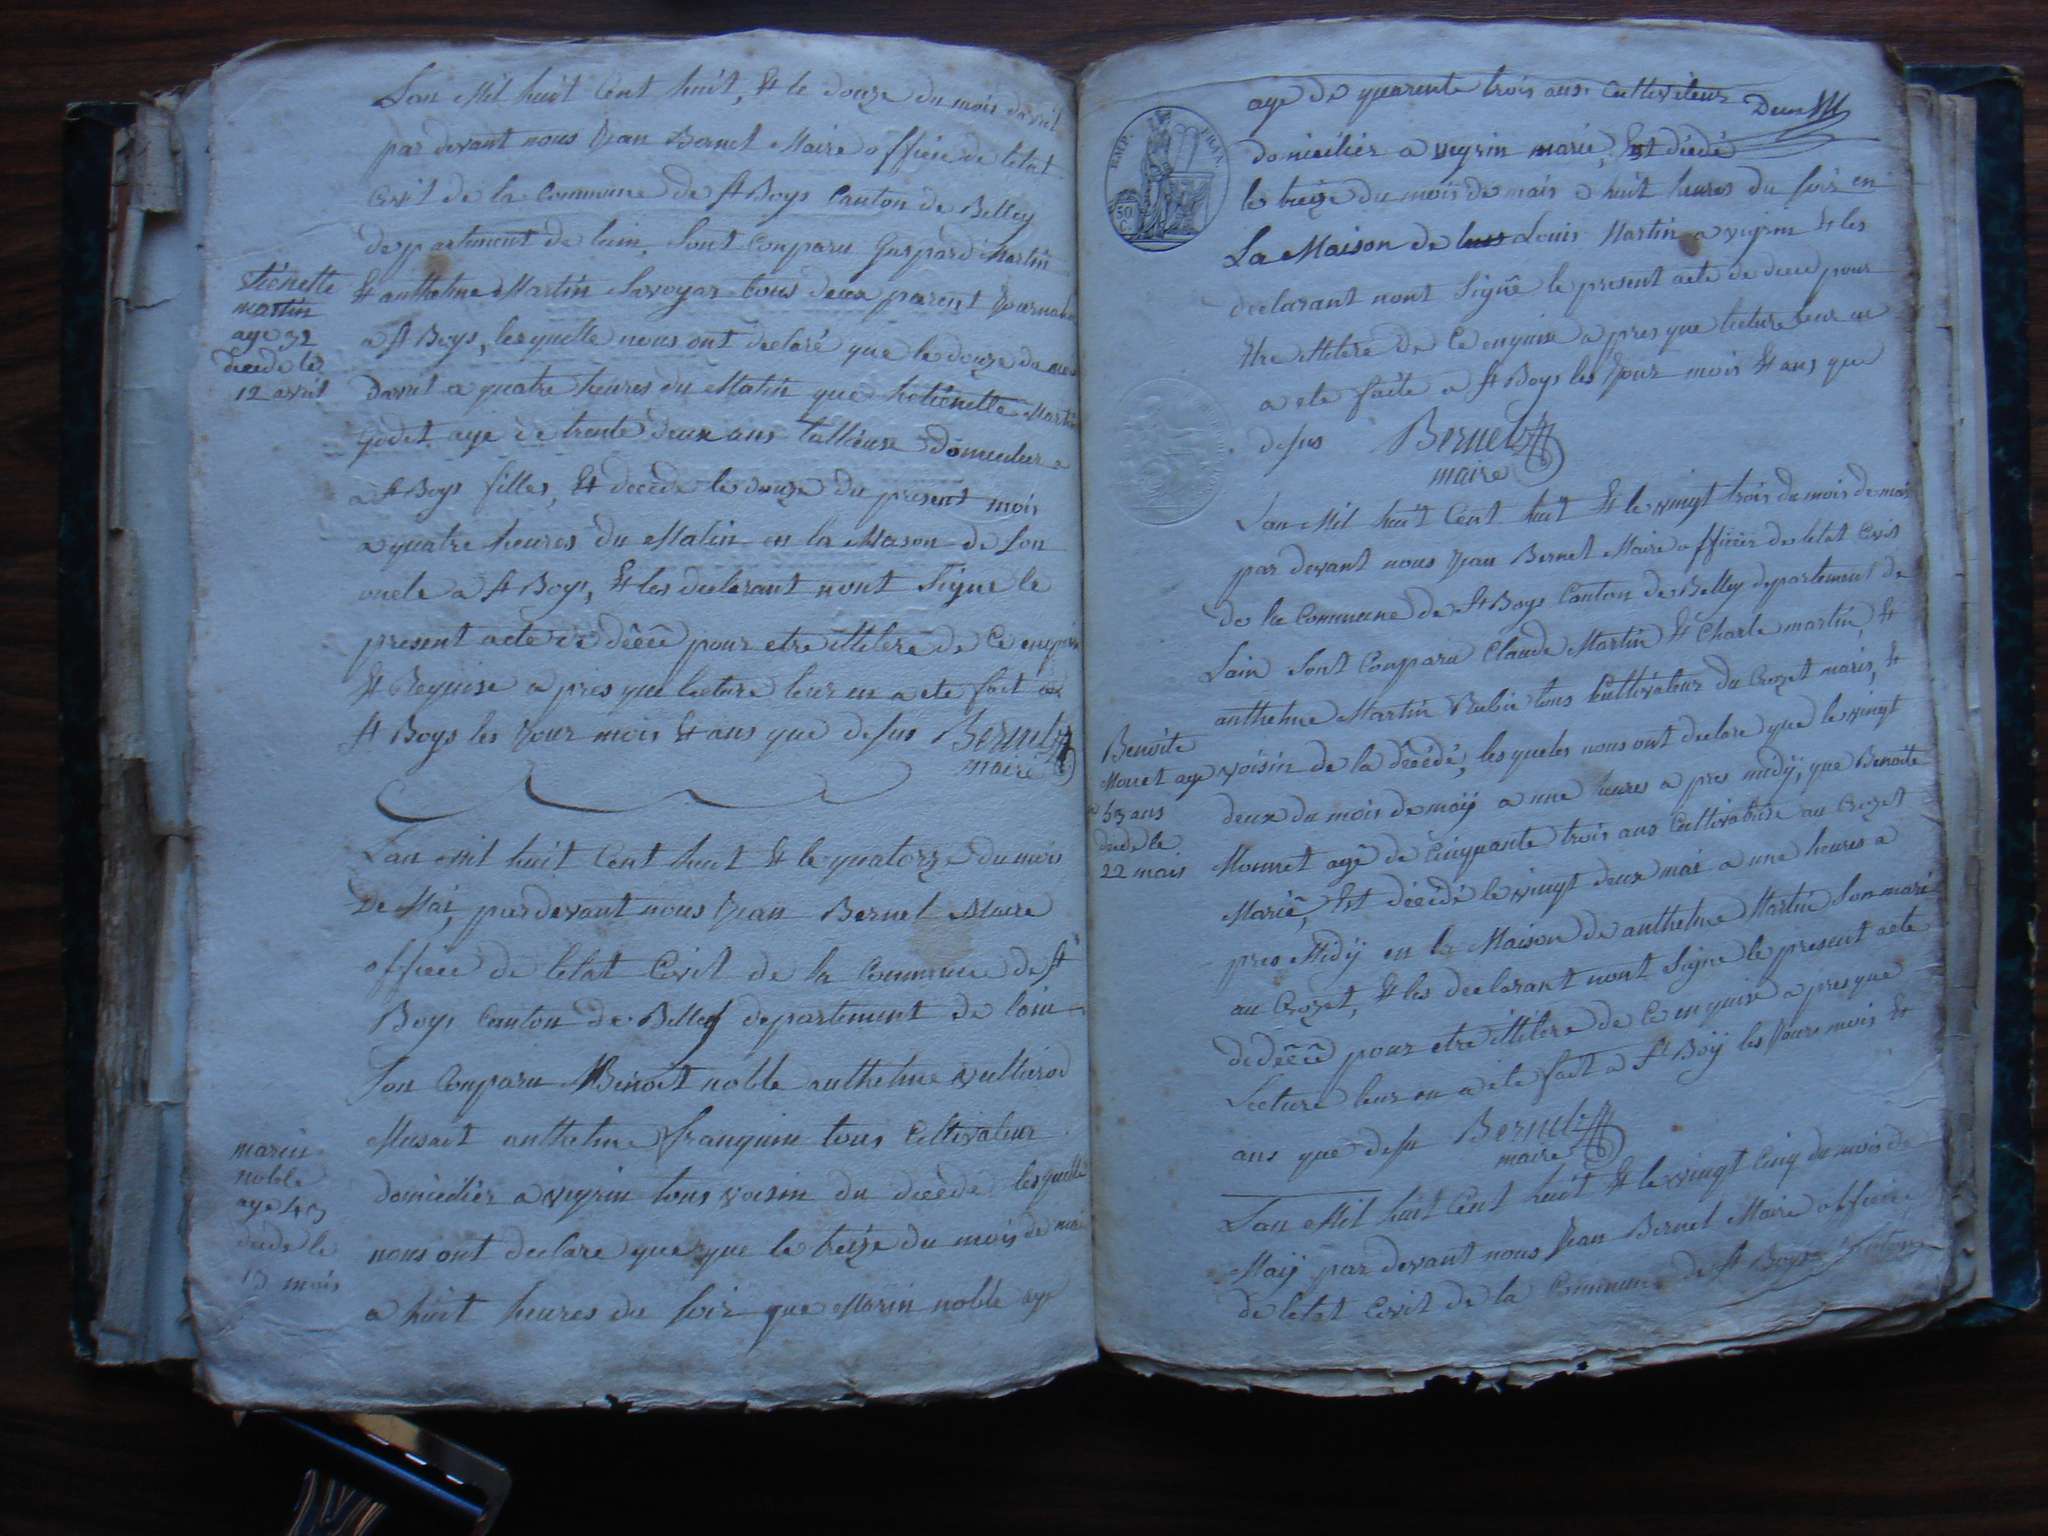 Lan Mil huit Cent huit, Et le douze du mois davril
par devant nous Jean Bernet Maire officie de letat
Civil de la Commune de St Boys Canton de Belley
departement de lain, sont Comparu Gaspard Martin
Et anthelme Martin Savoyar tous deux parent
a St Boys, lesquelle nous ont declaré que le douze du mois
Davril a quatre heures du Matin que hetienette Martin
Godet age de trente deux ans tallieuse domicilier a
a St Boys filles, Et decede le douze du present mois
a quatre heures du Matin en la Mason de Son
oncle a St Boys, Et les declarant nont Signe le
present acte de décé pour etre illitere de Ce enquis
Et Requise a pres que lecture leur en a ete fait
St Boys les Jour mois Et ans que desus Bernet
maire
stiénette
martin
age 32
decede le
12 avril
Lan Mil huit Cent huit Et le quatorze du mois
De Mai, par devant nous Jean Bernet Maire
officie de letat Civil de la Commune de St
Boys Canton de Belley departement de lain
Son Comparu Benoit noble anthelme vullierod
anthelme franquin tous Cultivateur
domicilier a veyrin tous voisin du decede lesquelle
nous ont declare que que le treize du mois de mai
a huit heures du soir que Marin noble age
marin
noble
age 43
decede le
13 mais
age de quarente trois ans Cultivateur Deux
domicilier a veyrin marié, Est décédé
le treize du mois de mais a huit heures du soir en
La Maison de Louis Martin a veyrin Et les
declarant nont Signé le present acte de dece pour
Etre illitere de Ce enquise a pres que lecture leur en
a ete faite a St Boys les Jour mois Et ans que
desus Bernet
maire
EMP. FRAN.
50
C.
Lan Mil huit Cent huit Et le vingt trois du mois de mai
par devant nous Jean Bernet Maire officier de letat Civil
de la Commune de St Boys Canton de Belley departement de
Lain Sont Comparu Claude Martin Et Charle martin, Et
anthelme Martin Rubin tous Cultivateur du Crozet mariés, Et
voisin de la décédé, lesqueles nous ont declare que le vingt
deux du mois de maij a une heures a pres midÿ, que Benoite
Monnet agé de Cinquante trois ans Cultivatrise au Crozet
Marié, Est décédé le vingt deux mai a une heures a
pres Midÿ en la Maison de anthelme Martin son mari
au Crozet, Et les declarant nont Signe le present acte
de décé pour etre illitere de Ce enquise a pres que
Lecture leur en a ete fait a St Boÿ les Jour mois Et
ans que desu Bernet
maire
Benoite
Monet age
53 ans
decede le
22 mais
Lan Mil huit Cent huit Et le vingt Cinq du mois de
Maij par devant nous Jean Bernet Maire officier
de letat Civil de la Commune de St Boys Canton